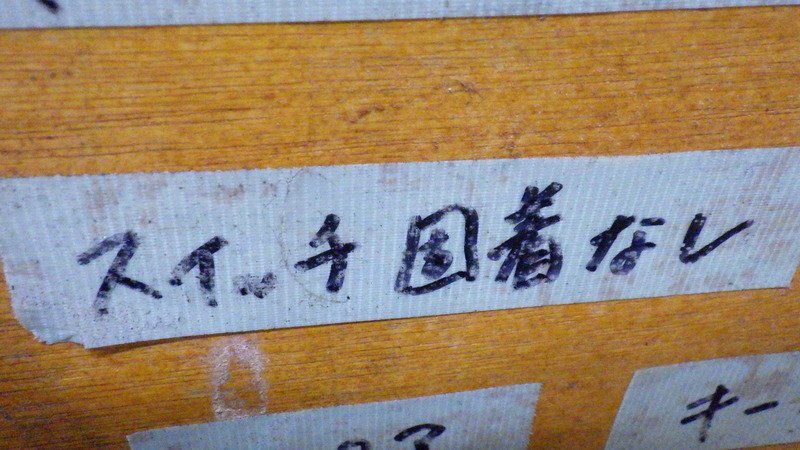 スイッチ固着なし
キー